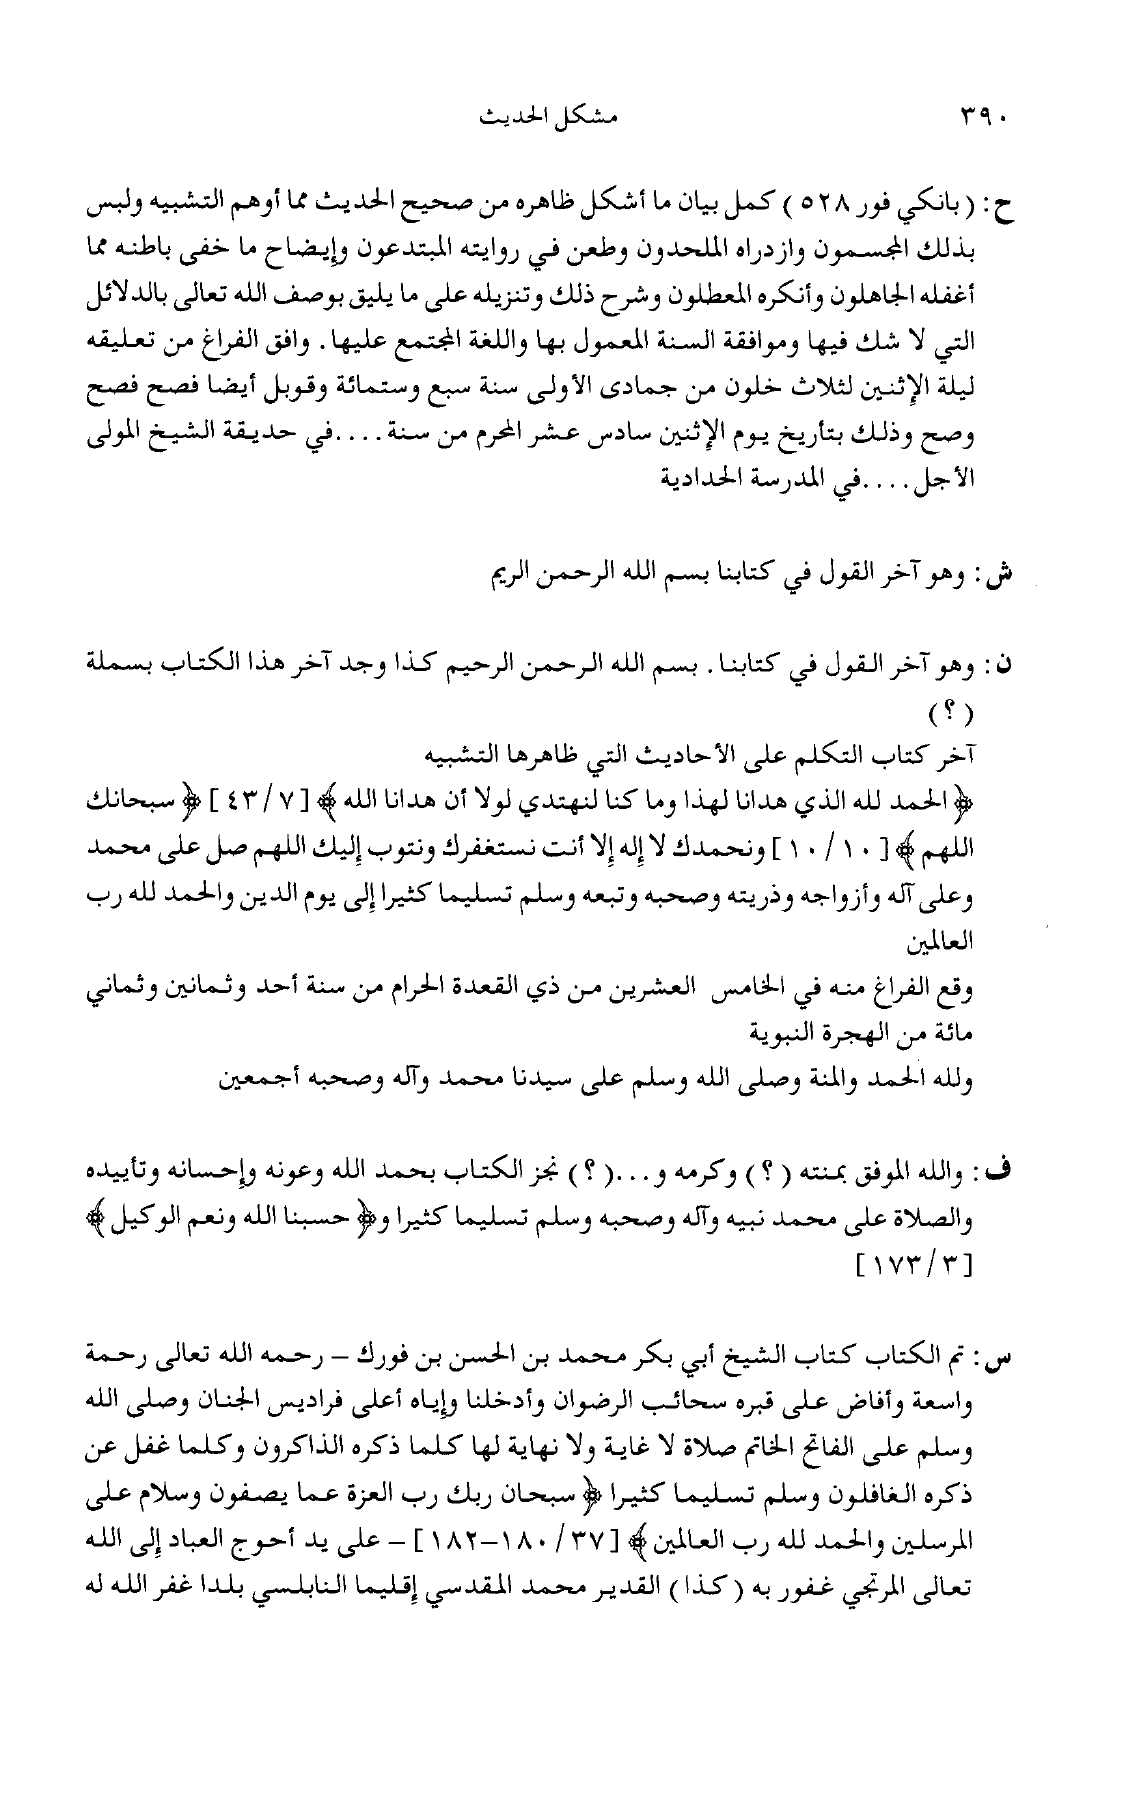 ٣٩٠
مشكل الحديث
ح: (بانكي فور ٥٢٨) كمل بيان ما أشكل ظاهره من صحيح الحديث مما أوهم التشبيه ولبس
بذلك المجسمون وازدراه الملحدون وطعن في روايته المبتدعون وإيضاح ما خفى باطنه مما
أغفله الجاهلون وأنكره المعطلون وشرح ذلك وتنزيله على ما يليق بوصف الله تعالى بالدلائل
التي لا شك فيها وموافقة السنة المعمول بها واللغة المجتمع عليها. وافق الفراغ من تعليقه
ليلة الإثنين لثلاث خلون من جمادى الأولى سنة سبع وستمائة وقوبل أيضا فصح فصح
وصح وذلك بتأريخ يوم الإثنين سادس عشر المحرم من سنة....في حديقة الشيخ المولى
الأجل....في المدرسة الحدادية
ش: وهو آخر القول في كتابنا بسم الله الرحمن الريم
ن: وهو آخر القول في كتابنا. بسم الله الرحمن الرحيم كذا وجد آخر هذا الكتاب بسملة
(؟)
آخر كتاب التكلم على الأحاديث التي ظاهرها التشبيه
﴿الحمد لله الذي هدانا لهذا وما كنا لنهتدي لولا أن هدانا الله﴾ [٤٣/٧] ﴿سبحانك
اللهم﴾ [١٠/١٠] ونحمدك لا إله إلا أنت نستغفرك ونتوب إليك اللهم صل على محمد
وعلى آله وأزواجه وذريته وصحبه وتبعه وسلم تسليما كثيرا إلى يوم الدين والحمد لله رب
العالمين
وقع الفراغ منه في الخامس العشرين من ذي القعدة الحرام من سنة أحد وثمانين وثماني
مائة من الهجرة النبوية
ولله الحمد والمنة وصلى الله وسلم على سيدنا محمد وآله وصحبه أجمعين
ف: والله الموفق بمنته (؟) وكرمه و...(؟) نجز الكتاب بحمد الله وعونه وإحسانه وتأييده
والصلاة على محمد نبيه وآله وصحبه وسلم تسليما كثيرا و﴿حسبنا الله ونعم الوكيل﴾
[١٧٣/٣]
س: تم الكتاب كتاب الشيخ أبي بكر محمد بن الحسن بن فورك – رحمه الله تعالى رحمة
واسعة وأفاض على قبره سحائب الرضوان وأدخلنا وإياه أعلى فراديس الجنان وصلى الله
وسلم على الفاتح الخاتم صلاة لا غاية ولا نهاية لها كلما ذكره الذاكرون وكلما غفل عن
ذكره الغافلون وسلم تسليما كثيرا ﴿سبحان ربك رب العزة عما يصفون وسلام على
المرسلين والحمد لله رب العالمين﴾ [١٨٠/٣٧–١٨٢] – على يد أحوج العباد إلى الله
تعالى المرتجي غفور به (كذا) القدير محمد المقدسي إقليما النابلسي بلدا غفر الله له